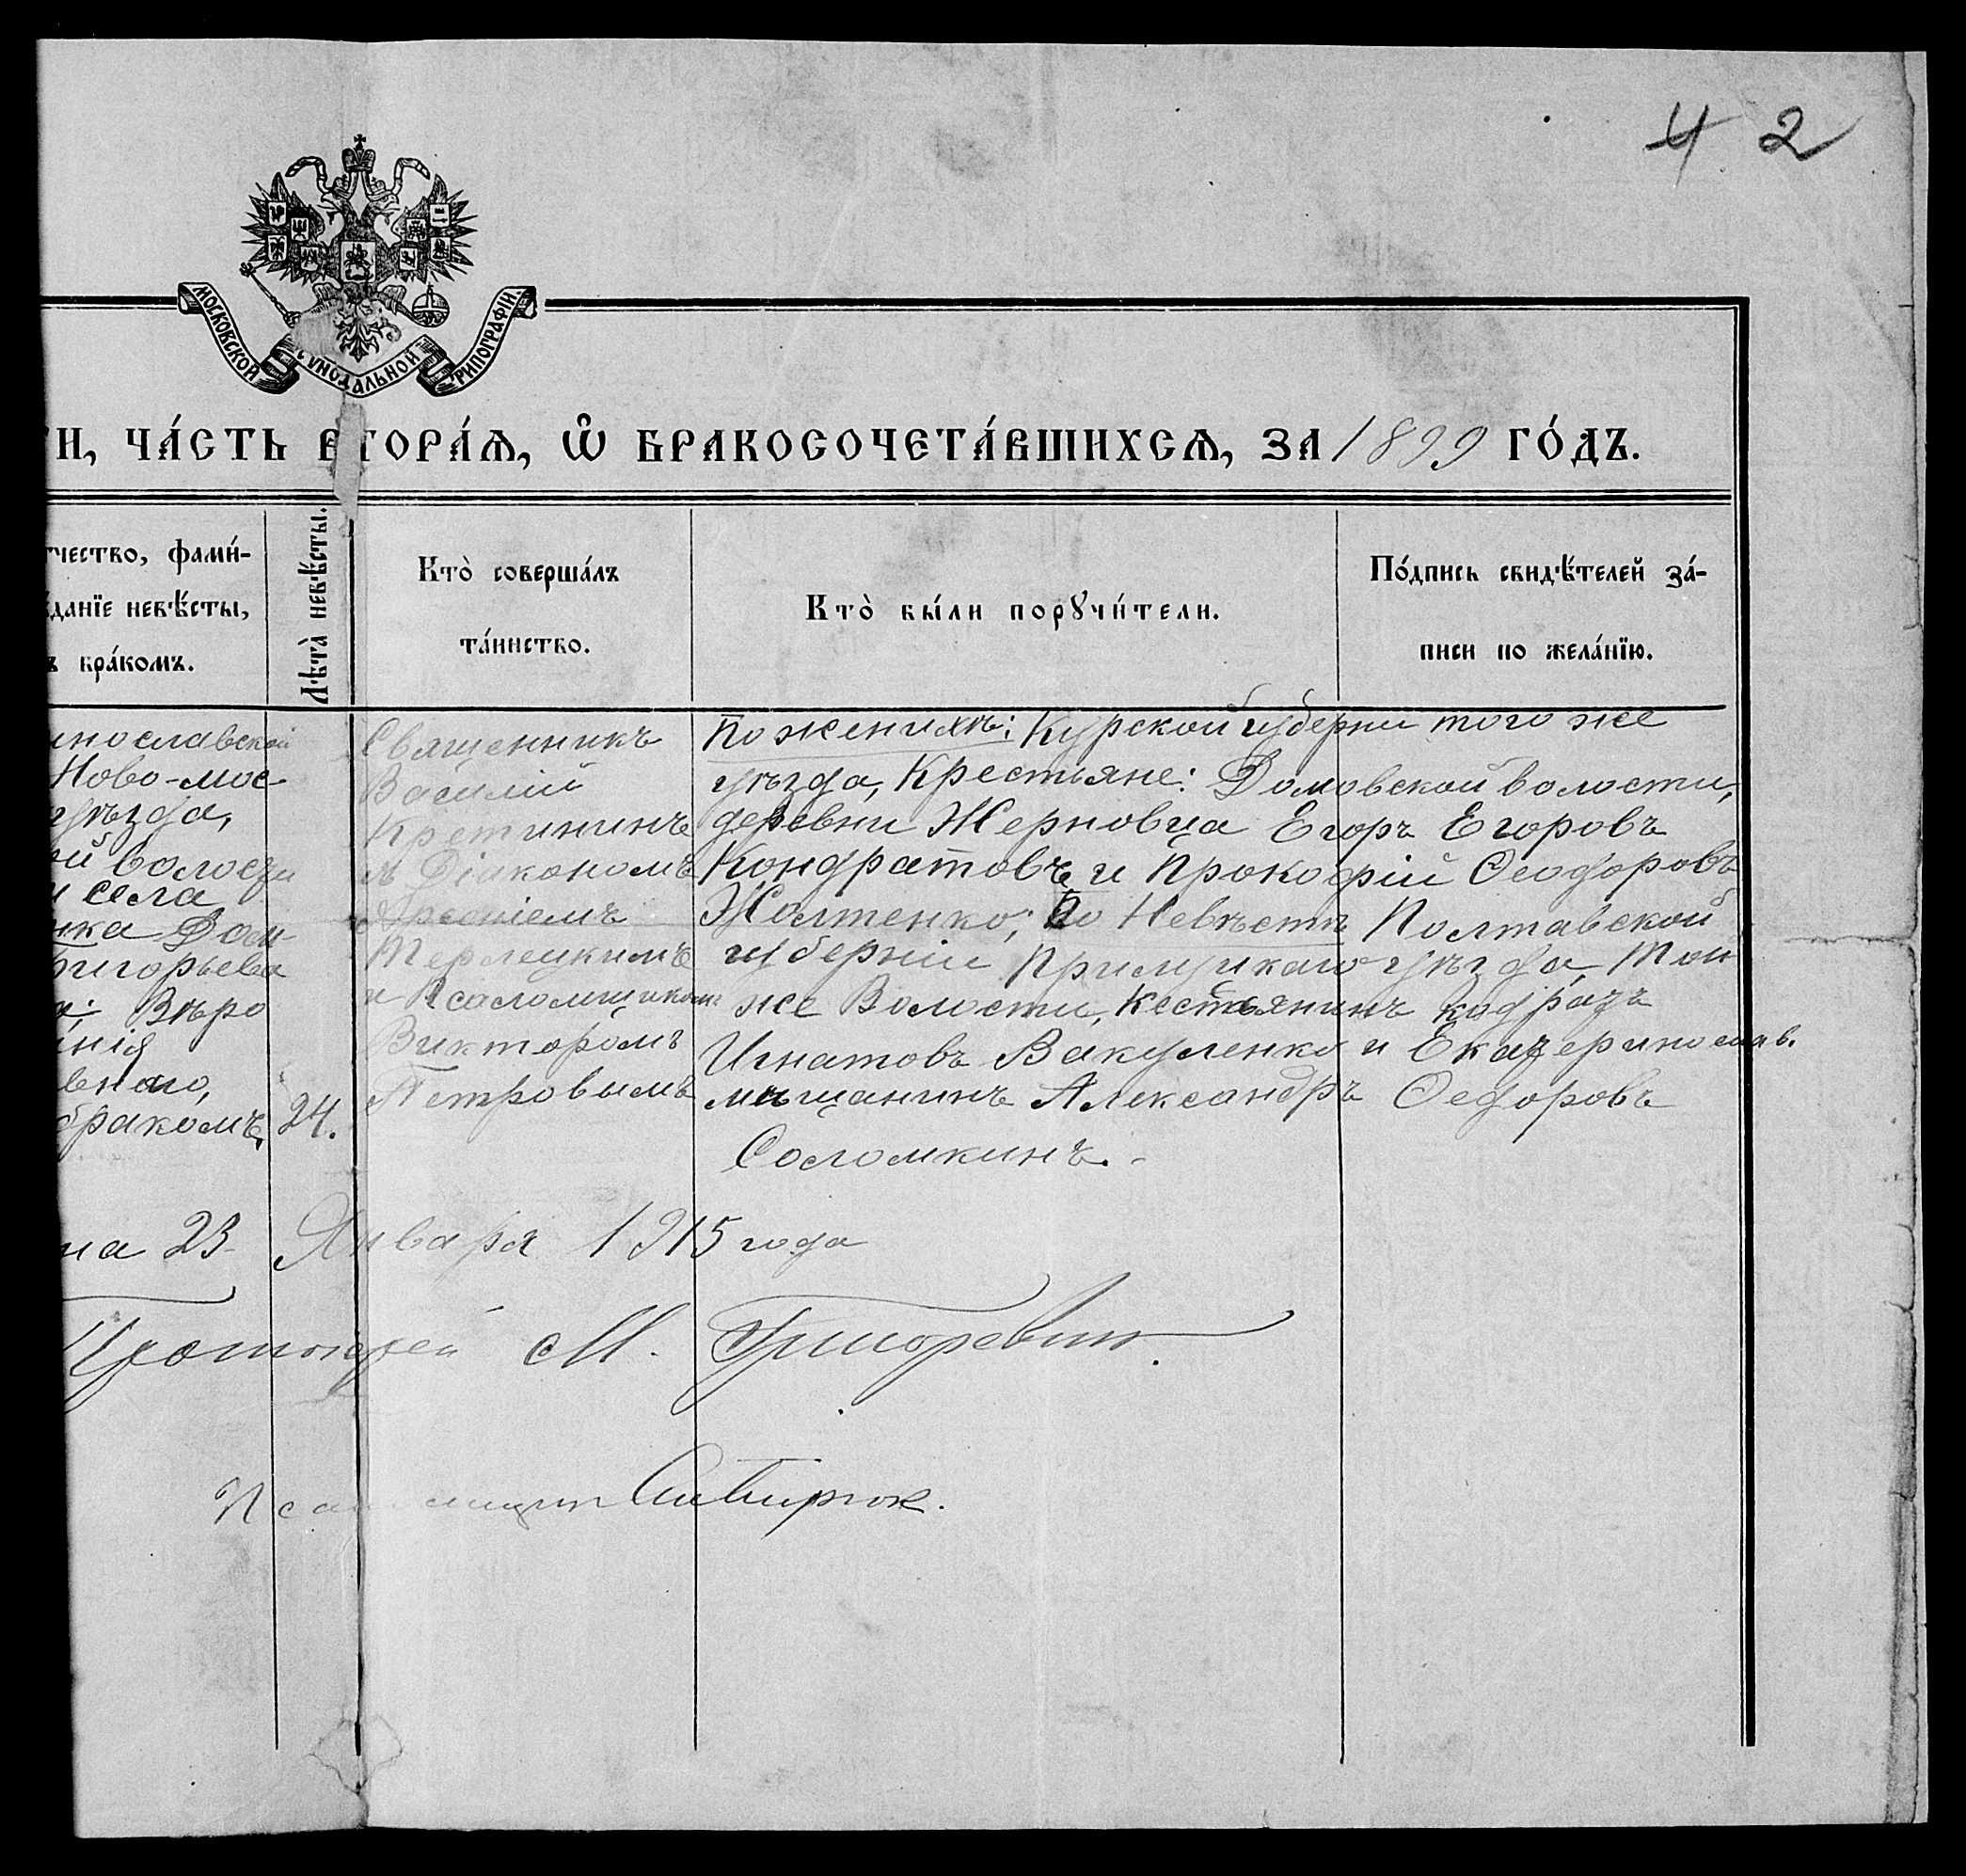 4 2
МОСКОВСКОЙ СѴНОДАЛЬНОЙ ТИПОГРАФІИ.
ГИ, ЧА́СТЬ ВТОРА́Ѧ, Ѽ БРАКОСОЧЕТА́ВШИХСѦ, ЗА 1899 ГО́ДЪ.
тчество, фами́-
ѣданїе невѣ́сты,
ъ бра́комъ.
Лѣта̀ невѣ́сты.
Кто̀ соверша́лъ
та́инство.
Кто̀ бы́ли порꙋчи́тели.
По́дпись свидѣ́телей за́-
писи по жела́нїю.
инославской
Ново-мос
уѣзда,
ой волости
и села
нка Дом-
Григорьева
Вѣро
нія
внаго,
бракомъ,
24.
Священникъ
Василій
Кретининъ
съ Діакономъ
Терлецкимъ
и Псаломщикомъ
Викторомъ
Петровымъ
По женихѣ: Курской губерни того же
уѣзда, Крестьяне: Домовской волости,
деревни Жерновца Егоръ Егоровъ
Кондратовъ и Прокофій Ѳеодоровъ
Жолтенко; По Невѣстѣ Полтавской
губерніи Прилукаго уѣзда, Той
же Волости, Кестьянинъ Кодратъ
Игнатовъ Вакуленко и Екатеринослав.
мѣщанинъ Александръ Ѳедоровъ
Соломкинъ.-
на 23 Января 1915 года
Протоіерей М. Григоревич.